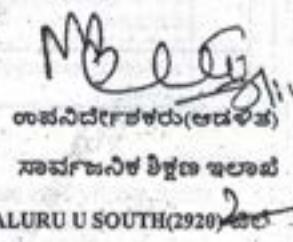 ಉಪನಿರ್ದೇಶಕರು(ಆಡಳಿತ)
ಸಾರ್ವಜನಿಕ ಶಿಕ್ಷಣ ಇಲಾಖೆ
ALURU U SOUTH(2920) ಜಿಲ್ಲೆ